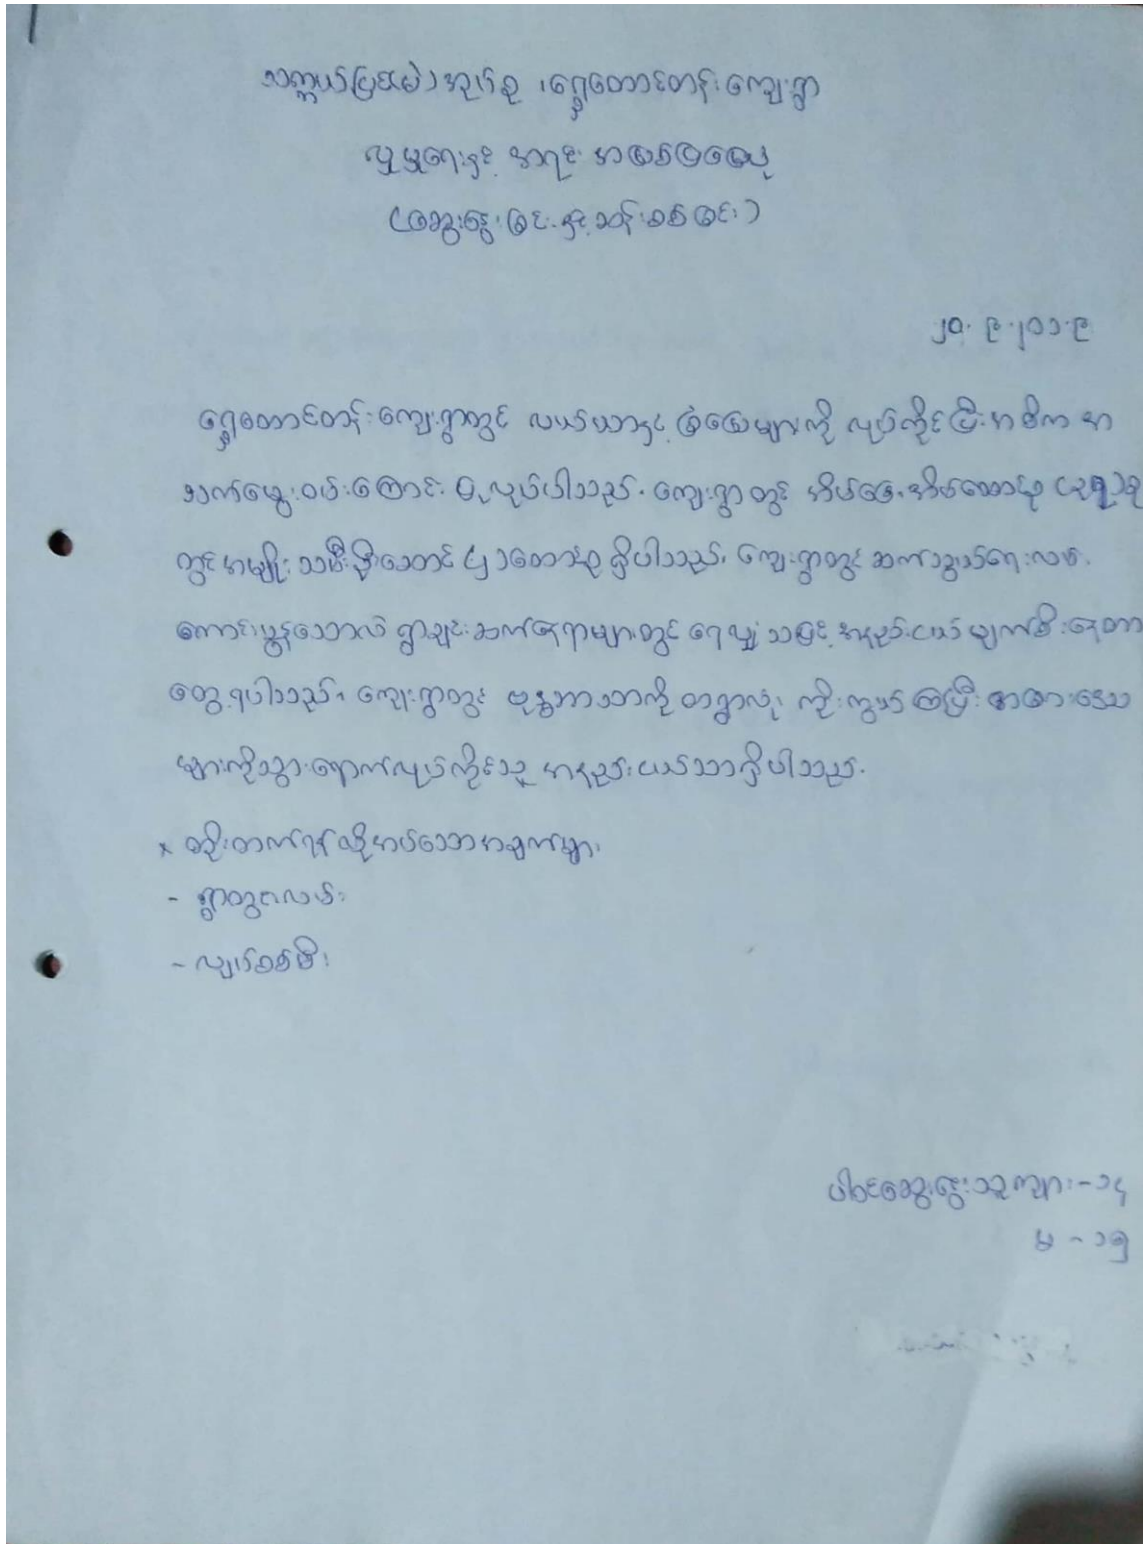 သက္ကယ်ပြင်(မ) အုပ်စု ၊ ရွှေတောင်တန်းကျေးရွာ
လူမှုရေးနှင့် အရင်းအမြစ်ပြမြေပုံ
(ဆွေးနွေးခြင်းနှင့်သန်းစစ်ခြင်း)
၂၀.၉.၂၀၁၉
ရွှေတောင်တန်းကျေးရွာတွင် လယ်ယာနှင့် ခြံမြေများကို လုပ်ကိုင်ပြီး အဓိက အ
သက်မွေးဝမ်းကြောင်း ပြုလုပ်ပါသည်. ကျေးရွာတွင် အိမ်ခြေ, အိမ်ထောင်စု
တွင် အမျိုးသမီးဦးဆောင် အိမ်ထောင်စု ရှိပါသည်၊ ကျေးရွာတွင် ဆက်သွယ်ရေးလမ်း
ကောင်းမွန်သော်လဲ ရွာချင်းဆက်နေရာများတွင် ရေလျှံသဖြင့် အနည်းငယ်မျက်စီးနေတာ
တွေ့ရပါသည်၊ ကျေးရွာတွင် ဗုဒ္ဓဘာသာကို တရွာလုံး ကိုးကွယ်ကြပြီး အခြားဒေသ
များကိုသွားရောက်လုပ်ကိုင်သူ အနည်းငယ်သာရှိပါသည်.
× တိုးတက်ရန်လိုအပ်သောအချက်များ
- ရွာတွင်းလမ်း
- လျှပ်စစ်မီး
ပါဝင်ဆွေးနွေးသူ ကျား - ၁၄
မ - ၁၅